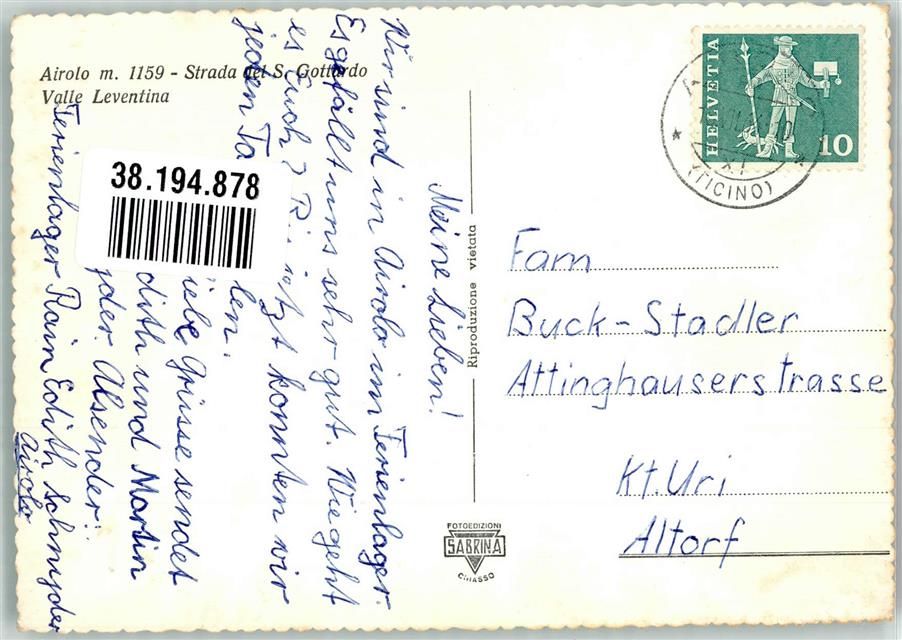 Airolo m. 1159 - Strada del S. Gottardo
Valle Leventina
38.194.878
Meine Lieben!
Wir sind in Airolo im Ferienlager.
Es gefällt uns sehr gut. Wie geht
es Euch? jetzt konnten wir
jeden Ta len.
iele Grüsse sendet
dith und Martin
jder. Absender:
Ferienlager Rain Edith Schnyder
Airolo
Riproduzione vietata
FOTOEDIZIONI
SABRINA
CHIASSO
HELVETIA
10
(TICINO)
Fam
Buck-Stadler
Attinghauserstrasse
Kt. Uri
Altorf